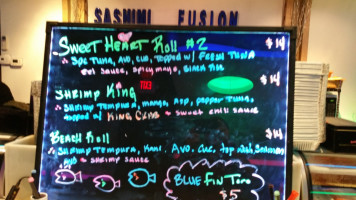 SASHIMI FUSION
SWEET HEART ROLL #2 $14
SPC TUNA, AVO, CUC, TOPPED W/ FRESH TUNA
EEL SAUCE, SPICY MAYO, BLACK TOB
SHRIMP KING $14
SHRIMP TEMPURA, MANGO, AVO, PEPPER TUNA,
TOPPED w/ KING CRAB + SWEET CHILI SAUCE
BEACH ROLL $14
SHRIMP TEMPURA, KANI, AVO. CUC, TOP WITH SALMON
AVO + SHRIMP SAUCE
BLUE FIN TORO
$5